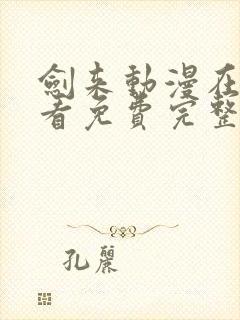 劍来動漫在
看免費完整
孔麗